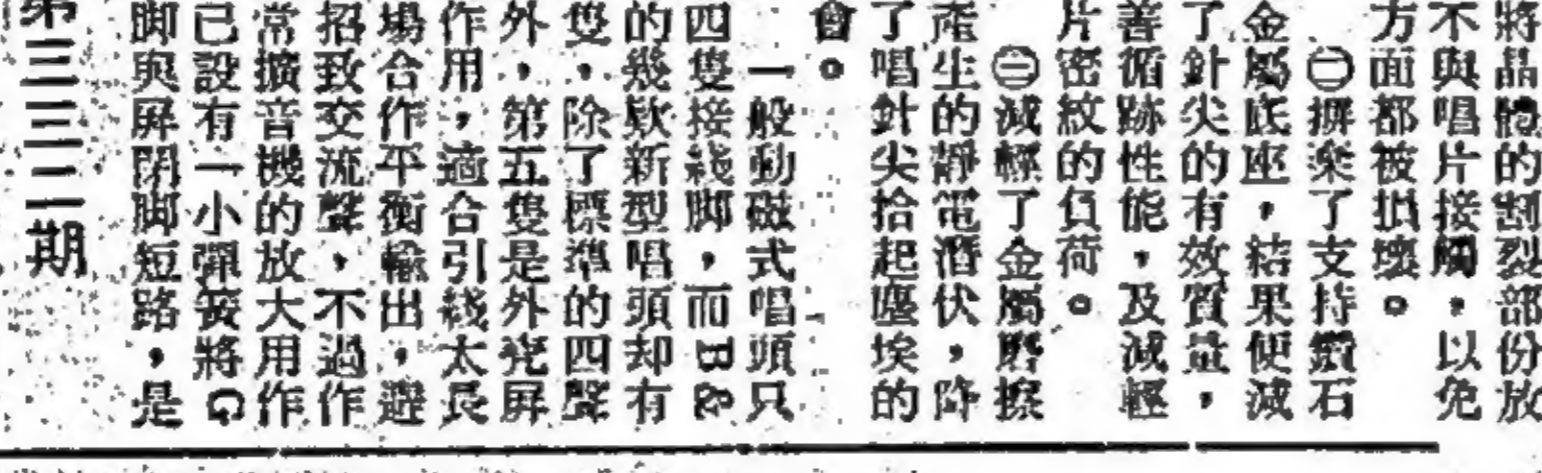 將晶體的割裂部份放
不與唱片接觸，以免
方面都被損壞。
㊁摒棄了支持鑽石
金屬底座，結果便減
了針尖的有效質量，
善循跡性能，及減輕
片密紋的負荷。
㊂減輕了金屬磨擦
產生的靜電潛伏，降
了唱針尖拾起塵埃的
會。
一般動磁式唱頭只
四隻接綫脚，而B&
的幾欵新型唱頭却有
隻，除了標準的四聲
外，第五隻是外壳屏
作用，適合引綫太長
塲合作平衡輸出，避
招致交流聲，不過作
常擴音機的放大用作
已設有一小彈簧將G
脚與屏閉脚短路，是
第三三二期